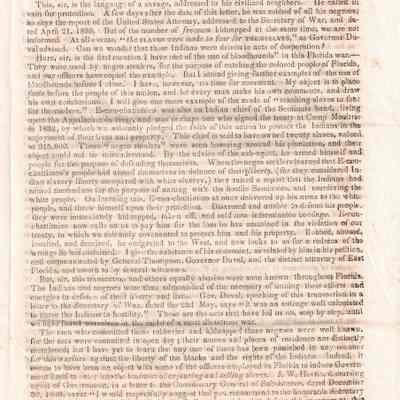 This, sir, is the language of a savage, addressed to his civilized neighbors. He called in
vain for protection. A few days after the date of this letter, he was robbed of all his negroes,
so says the report of the United States Attorney, addressed to the Secretary of War, and da-
ted April 21, 1836. But of the number of freemen kidnapped at the same time, we are not
informed. At all events, "THE SLAVES WERE MADE SO FOR THE HEREAFTER," as Governor Du-
val advised. Can we wonder that those Indians were driven to acts of desperation?
Here, sir, is the first mention I have of the use of bloodhounds in this Florida war.
They were used by negro stealers, for the purpose of catching the colored people of Florida,
and our officers have copied the example. But I intend giving further examples of the use of
bloodhounds before I close. I have, however, no time for comments. My object is to place
facts before the people of this nation, and let every man make his own comments, and draw
his own conclusions. I will give one more example of the mode of "catching slaves to
for the owners." E-con-chattimico was also an Indian chief of the Seminole band, living
upon the Appalachicola river, and was of those who signed the treaty of Camp Moultrie
in 1832, by which we solemnly pledged the faith of this nation to protect the Indians in the
enjoyment of their lives and property. This chief is said to have owned twenty slaves, valued
at $15,000. These "negro stealers" were seen hovering around his plantation, and their
object could not be misunderstood. By the advice of the sub-agent, he armed himself and
people for the purpose of defending themselves. When the negro stealers learned that E-con-
chattimico's people had armed themselves in defence of their liberty, (for they considered In-
dian slavery liberty compared with white slavery,) they raised a report that the Indians had
armed themselves for the purpose of uniting with the hostile Seminoles, and murdering the
white people. On learning this, E-conchattimico at once delivered up his arms to the white
people, and threw himself upon their protection. Disarmed and unable to defend his people,
they were immediately kidnapped, taken off, and sold into interminable bondage. E-con-
chattimico now calls on us to pay him for the loss he has sustained in the violation of our
treaty, in which we solemnly covenanted to protect him and his property. Robbed, abused,
insulted, and deceived, he emigrated to the West, and now looks to us for a redress of the
wrongs he has sustained. I give the substance of his comment, as related by him in his petition,
and corroborated by General Thompson, Governor Duval, and the district attorney of East
Florida, and sworn to by several witnesses.
But, sir, this transaction, and others equally abusive were known throughout Florida.
The Indians and negroes were thus admonished of the necessity of uniting their efforts and
energies in defence of their liberty and lives. Gov. Duval, speaking of this transaction in a
letter to the Secretary of War, dated the 23d May, says "it was an outrage well calculated
to rouse the Indians to hostility." Those are the acts that have led us on, step by step, until
we have found ourselves in the midst of a most disastrous war.
The men who committed these robberies and kidnapped these negroes were well known,
for the acts were committed in open day; their names and places of residence are distinctly
mentioned; but I have yet to learn that any one of them has been punished in any manner
for this warfare against the liberty of the blacks and the rights of the Indians. Indeed, it
seems to have been an object with some of the officers employed in Florida to induce Govern-
ment itself to enter into the business of capturing and selling slaves. J. W. Harris, disbursing
agent of Government, in a letter to the Commissary General of Subsistence, dated December
30, 1836, says: "I would respectfully suggest that you recommend to the honorable Secretary